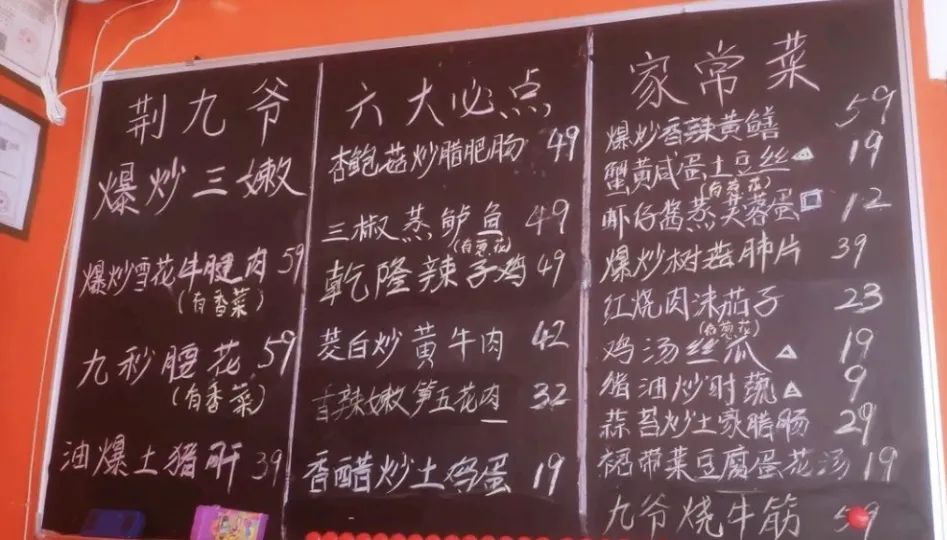 荆九爷
爆炒三嫩
爆炒雪花牛腱肉 59
(有香菜)
九秒腰花 59
(有香菜)
油爆土猪肝 39
六大必点
杏鲍菇炒腊肥肠 49
三椒蒸鲈鱼 49
(有葱花)
乾隆辣子鸡 49
茭白炒黄牛肉 42
香辣嫩笋五花肉 32
香醋炒土鸡蛋 19
家常菜
爆炒香辣黄鳝 59
蟹黄咸蛋土豆丝 19
(有葱花)
虾仔酱蒸芙蓉蛋 12
爆炒树菇肺片 39
红烧肉沫茄子 23
(有葱花)
鸡汤丝瓜 19
猪油炒时蔬 9
蒜苔炒土家腊肠 29
裙带菜豆腐蛋花汤 19
九爷烧牛筋 59